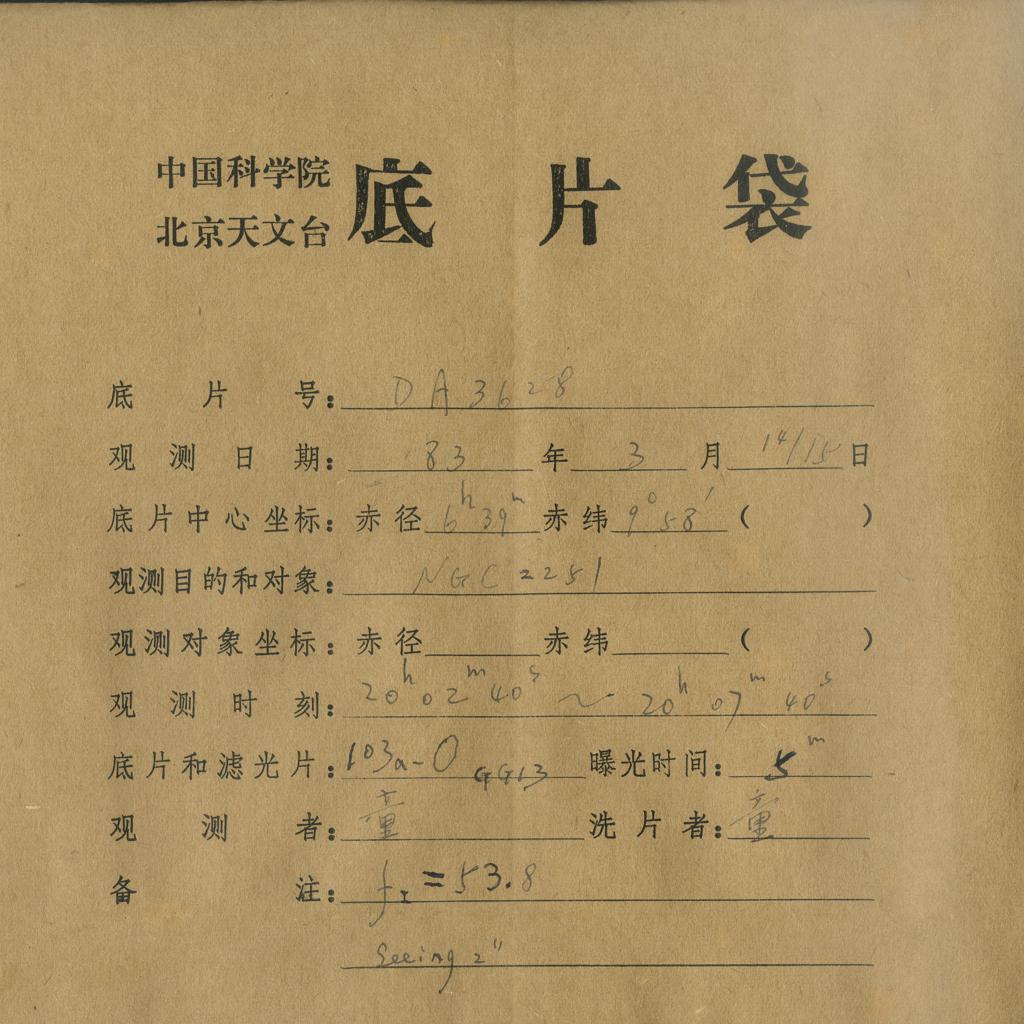 中国科学院
北京天文台 底片袋
底片号: DA3628
观测日期: 83年3月14/15日
底片中心坐标: 赤径 6h39m 赤纬 9°58′ ( )
观测目的和对象: NGC2251
观测对象坐标: 赤径 赤纬 ( )
观测时刻: 20h02m40s ~ 20h07m40s
底片和滤光片: 103a-O GG13 曝光时间: 5m
观测者: 童 洗片者: 童
备注: fI=53.8
Seeing 2″